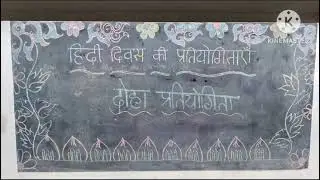 KINEMASTER
हिंदी दिवस की प्रतियोगिताएँ
दोहा प्रतियोगिता